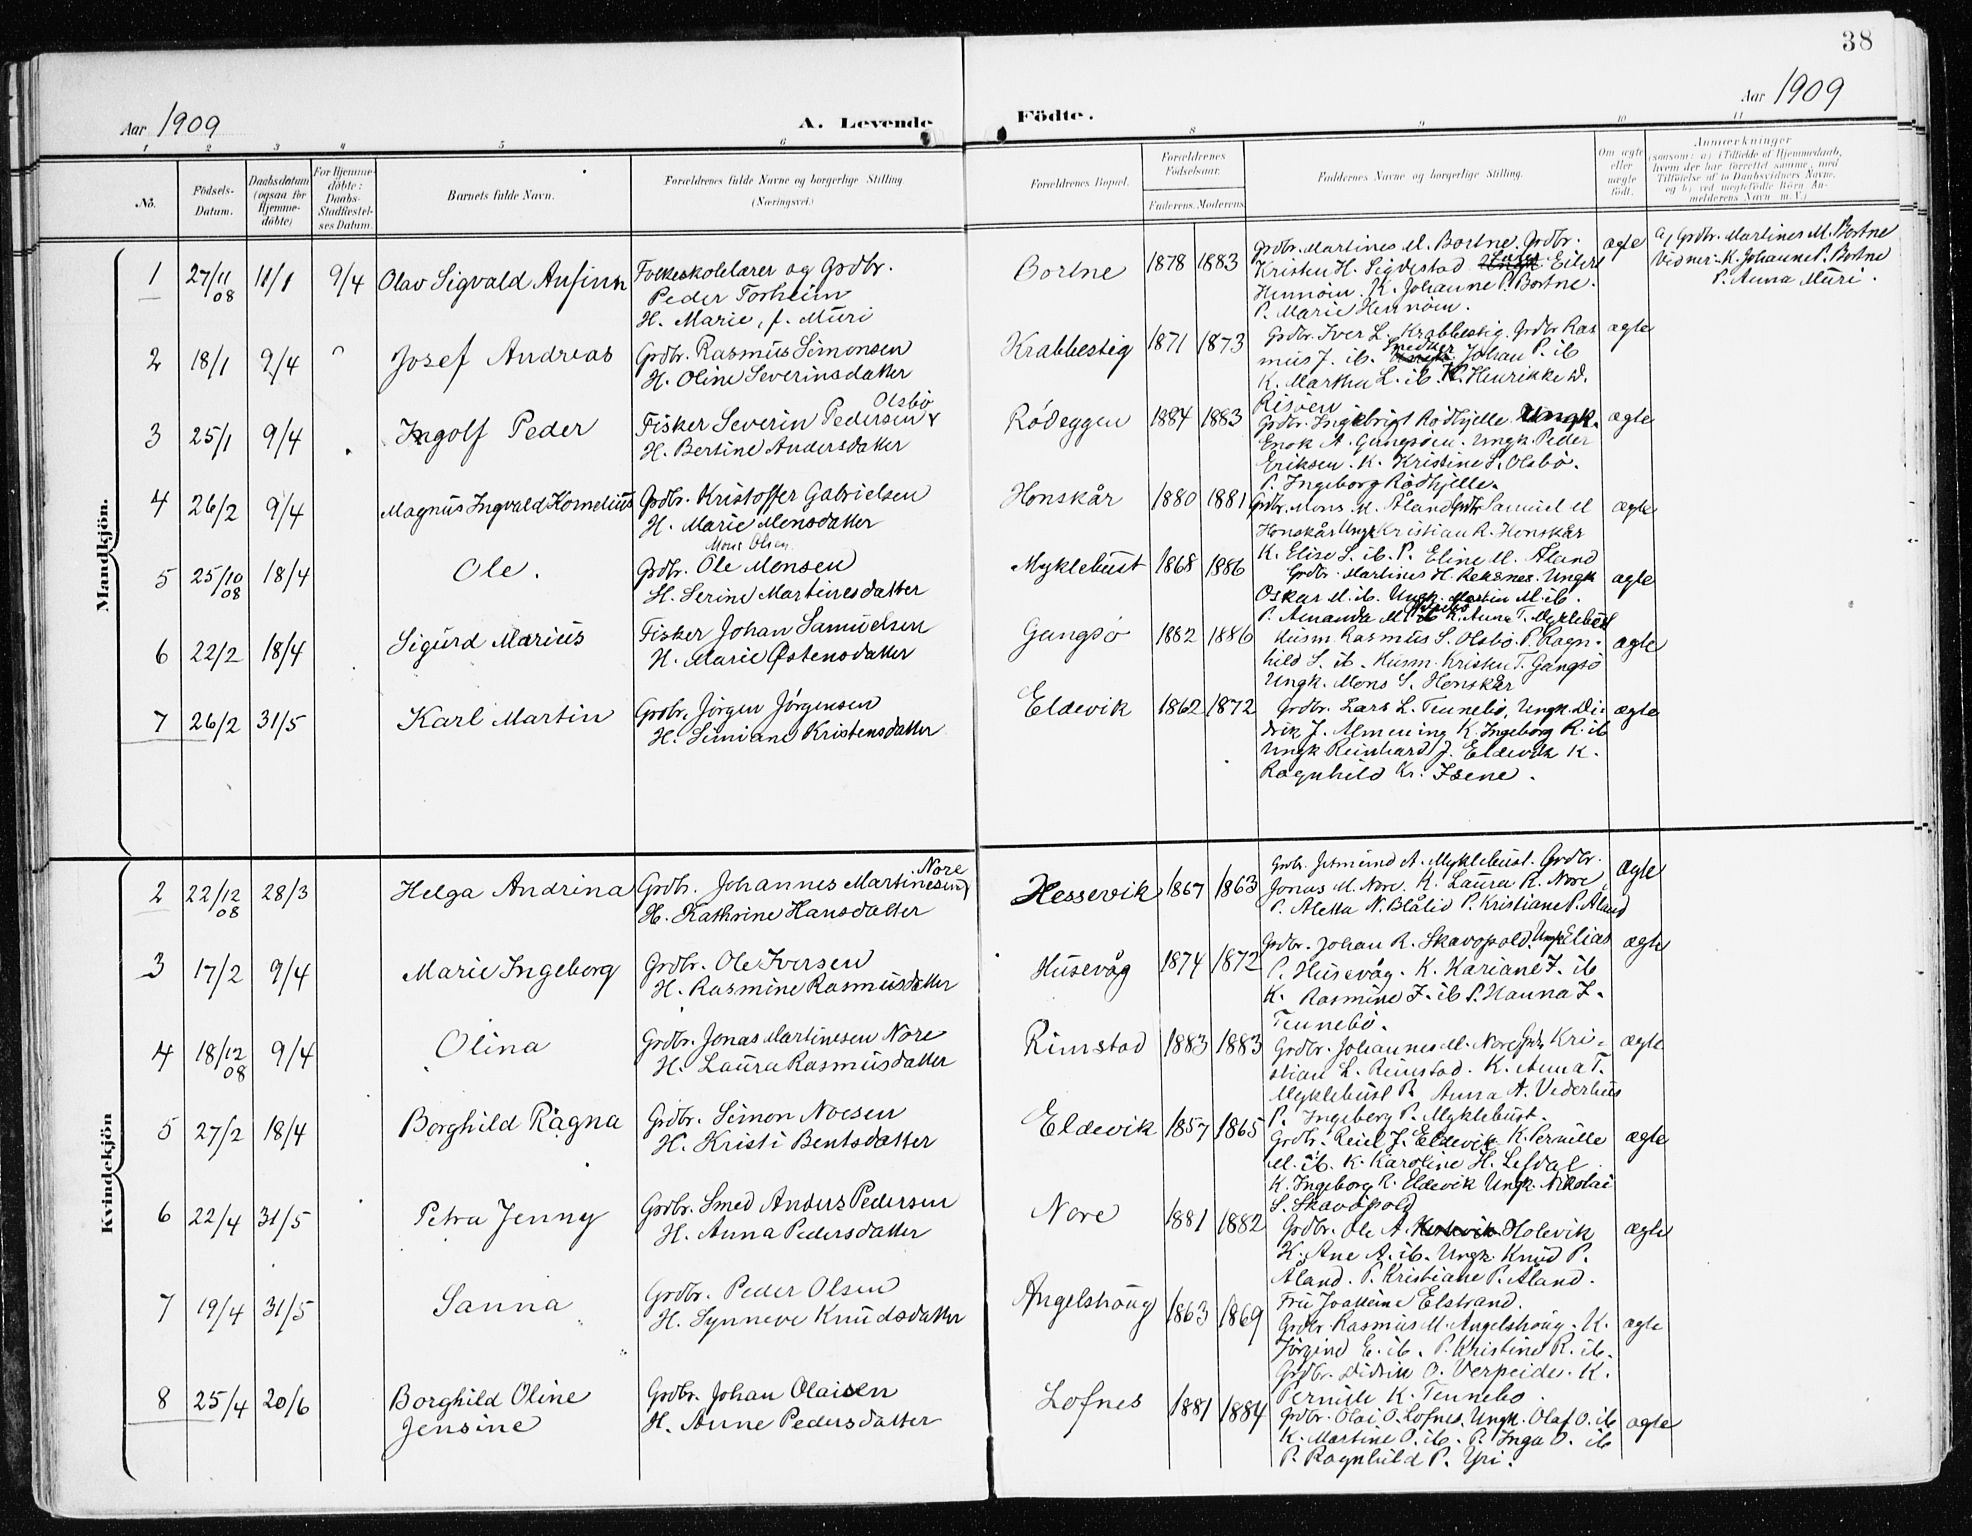 38
Aar 1909
A. Levende
Födte.
Aar 1909
1 2 3 4 5 6 8 9 10 11
No.
Födsels-Datum.
Daabsdatum (ogsaa for Hjemme-döbte)
For Hjemme-döbte: Daabs-Stadfæstel-ses Datum.
Barnets fulde Navn.
Forældrenes fulde Navne og borgerlige Stilling (Næringsvei.)
Forældrenes Bopæl.
Forældrenes Födselsaar.
Faderens. Moderens.
Faddernes Navne og borgerlige Stilling.
Om ægte eller uægte födt.
Anmærkninger
(saasom: a) i Tilfælde af Hjemmedaab,
hvem der har forrettet samme, med
Tilföielse af to Daabsvidners Navne,
og b) ved uægtefödte Börn An-
melderens Navn m. V.)
Mandkjön.
1 27/11 08 11/1 9/4 Olav Sigvald Anfinn
Folkeskolelærer og Grdbr.
Peder Torheim
H. Marie, f. Muri
Bortne 1878 1883
Grdbr. Martines M. Bortne. Grdbr.
Kristen H. Sigdestad Eilert
Hennöen. K. Johanne P. Bortne.
P. Marie Hennöen.
ægte
a) Grdbr. Martines M. Bortne
Vidner: K. Johanne P. Bortne
P. Anna Muri.
2 18/1 9/4 Josef Andreas
Grdbr. Rasmus Simonsen
H. Oline Severinsdatter
Krabbestig 1871 1873
Grdbr. Iver L. Krabbestig. Grdbr Ras
mus J. ib. Snedker Johan P. ib
K. Martha L. ib. K. Henrikke W.
Risöen
ægte
3 25/1 9/4 Ingolf Peder
Fisker Severin Pedersen Olsbö
H. Bertine Andersdatter
Rödeggen 1884 1883
Grdbr. Ingebrigt Rödhjelle Ungk.
Enok A. Gangsöen. Ungk. Peder
Eriksen. K. Kristine S. Olsbö.
P. Ingeborg Rödhjelle.
ægte
4 26/2 9/4 Magnus Ingvald Kornelius
Grdbr. Kristoffer Gabrielsen
H. Marie Monsdatter
Honskår 1880 1881
Grdbr. Mons M. Åland Grdbr Samuel M
Honskår Ungk Kristian R. Honskår
K. Elise S. ib. P. Eline M. Åland
ægte
5 25/10 08 18/4 Ole.
Mons Olsen
Grdbr. Ole Monsen
H. Serine Martinesdatter
Myklebust 1868 1886
Grdbr. Martines H. Reksnes. Ungk
Oskar M. ib. Ungk. Martin M. ib.
P. Amanda M. ib K. Anna T. Myklebust
ægte
6 22/2 18/4 Sigurd Marius
Fisker Johan Samuelsen
H. Marie Østensdatter
Gangsö 1882 1886
Husm. Rasmus S. Olsbö. P. Ragn-
hild S. ib. Husm. Kristen T. Gangsö
Ungk. Mons S. Honskår
ægte
7 26/2 31/5 Karl Martin
Grdbr. Jörgen Jörgensen
H. Simiane Kristensdatter
Eldevik 1862 1872
Grdbr. Lars L. Tennebö, Ungk. Di-
drik J. Almening K. Ingeborg R. ib
Ungk Reinhard J. Eldevik K.
Ragnhild Kr. Isene.
ægte
Kvindekjön
2 22/12 08 28/3 Helga Andrina
Grdbr. Johannes Martinesen Nore
H. Kathrine Hansdatter
Hessevik 1867 1863
Grdbr. Jetmund A. Myklebust. Grdbr.
Jonas M. Nore. K. Laura R. Nore,
P. Aletta N. Blålid P. Kristiane P. Åland
ægte
3 17/2 9/4 Marie Ingeborg
Grdbr. Ole Iversen
H. Rasmine Rasmusdatter
Husevåg 1874 1872
Grdbr. Johan R. Skavopold. Ungk Elias
P. Husevåg. K. Kariane J. ib
K. Rasmine J. ib P. Hanna J.
Tennebö.
ægte
4 18/12 08 9/4 Olina
Grdbr. Jonas Martinesen Nore
H. Laura Rasmusdatter
Rimstad 1883 1883
Grdbr. Johannes M. Nore Grdbr. Kri-
stian L. Rimstad. K. Anna T.
Myklebust P. Anna A. Vederhus
P. Ingeberg P. Myklebust.
ægte
5 27/2 18/4 Borghild Ragna
Grdbr. Simon Noesen
H. Kristi Bentsdatter
Eldevik 1857 1865
Grdbr. Reiel J. Eldevik K. Pernille
M. ib. K. Karoline H. Lefdal
K. Ingeborg R. Eldevik Ungk Nikolai
S. Skavöpold
ægte
6 22/4 31/5 Petra Jenny
Grdbr. Smed Anders Pedersen
H. Anna Pedersdatter
Nore 1881 1882
Grdbr. Ole A. Holevik
K. Ane A. ib. Ungk. Knud P.
Åland. P. Kristiane P. Åland.
Fru Elstrand.
ægte
7 19/4 31/5 Sanna
Grdbr. Peder Olsen
H. Synneve Knudsdatter
Angelshoug 1863 1869
Grdbr. Rasmus M. Angelshoug. K.
Jörgine E. ib. P. Kristine R. ib.
Grdbr. Didrik O. Verpeide. K.
Pernille K. Tennebö.
ægte
8 25/4 20/6 Borghild Oline
Jensine
Grdbr. Johan Olaisen
H. Anne Pedersdatter
Lofnes 1881 1884
Grdbr. Olai O. Lofnes. Ungk. Olaf O. ib
K. Martine O. ib. P. Inga O. ib
P. Ragnhild P. Yri.
ægte